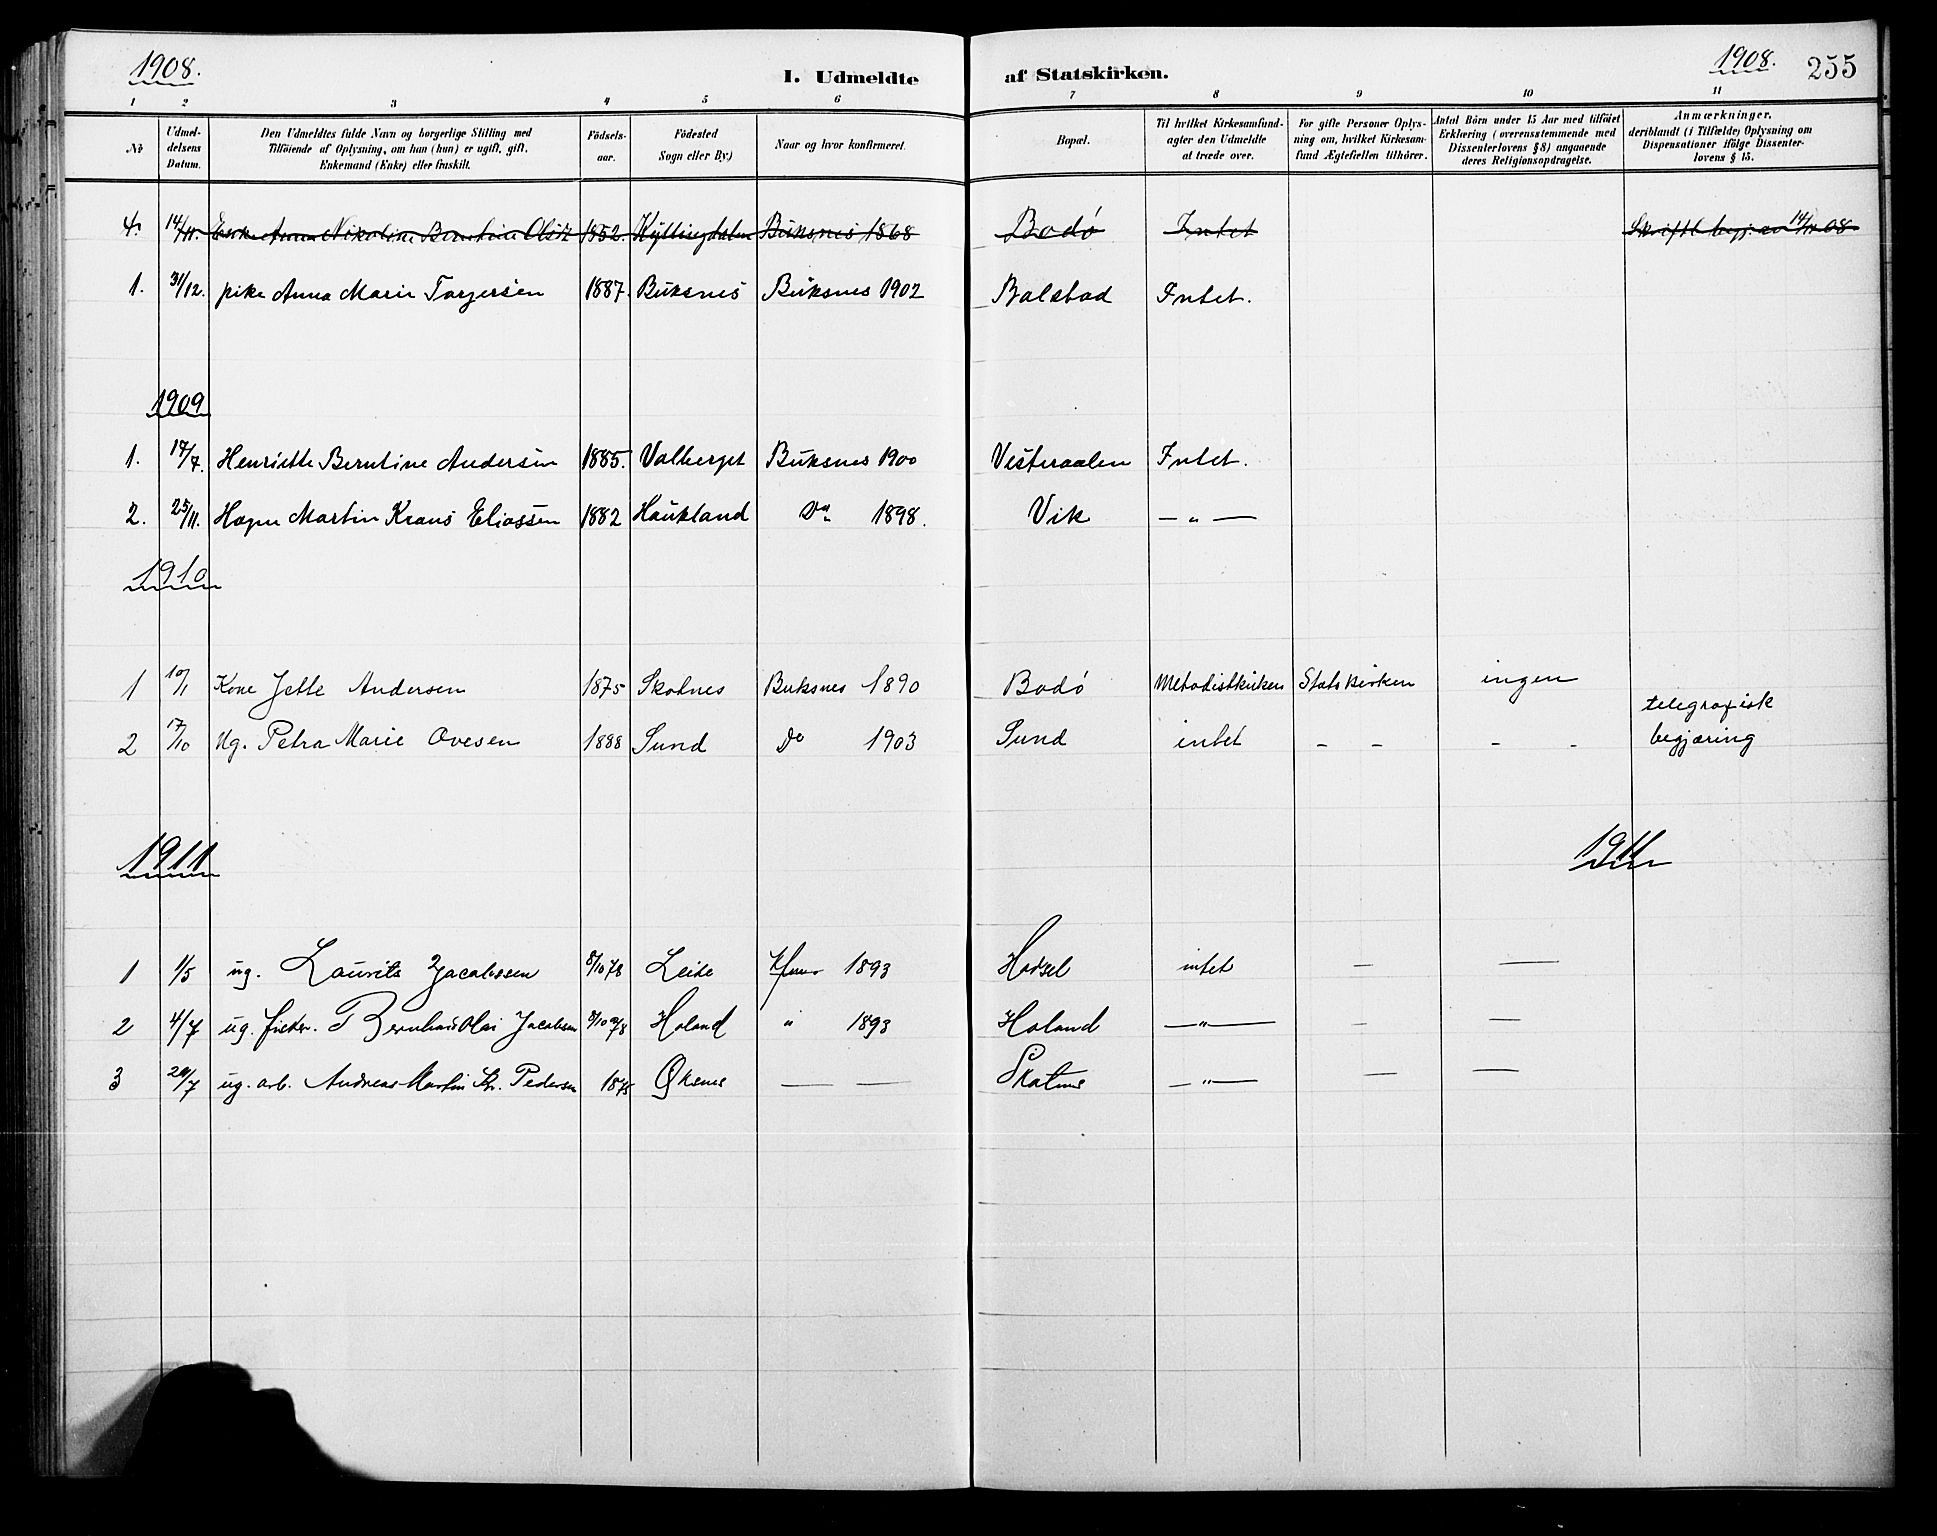 1908.
I. Udmeldte af Statskirken.
1908.
255
1 2 3 4 5 6 7 8 9 10 11
No
Udmel-
delsens
Datum.
Den Udmeldtes fulde Navn og borgerlige Stilling med
Tilföiende af Oplysning, om han (hun) er ugift, gift,
Enkemand (Enke) eller fraskilt.
Födsels-
aar.
Födested
Sogn eller By.)
Naar og hvor konfirmeret.
Bopæl.
Til hvilket Kirkesamfund-
agter den Udmeldte
at træde over.
For gifte Personer Oplys-
ning om, hvilket Kirkesam-
fund Ægtefællen tilhörer.
Antal Börn under 15 Aar med tilföiet
Erklæring (overensstemmende med
Dissenterlovens § 8) angaaende
deres Religionsopdragelse.
Anmærkninger,
deriblandt (i Tilfælde) Oplysning om
Dispensationer ifölge Dissenter-
lovens § 15.
4. 14/11. Anna Nikoline Berntine 1852. Buksnes 1868 Bodö Intet Skriftl. begj. av 14/11 08
1. 31/12. pike Anna Marie Torgersen 1887. Buksnes Buksnes 1902 Balstad Intet.
1909
1. 17/7. Henriette Berntine Andersen 1885. Valberget Buksnes 1900 Vesteraalen Intet.
2. 25/11. Hagen Martin Kraus Eliassen 1882 Haukland Do 1898. Vik — " —
1910
1 10/1 Kone Jette Andersen 1875 Skotnes Buksnes 1890 Bodö Methodistkirken Statskirken ingen
2 17/10 Ug. Petra Marie Ovesen 1888 Sund Do 1903 Sund intet - - - - telegrafisk
begjæring
1911
1911
1 1/5 ug. Laurits Jacobssen 8/10 78 Leite 1893 Hadsel intet — —
2 4/7 ug. fisker. Bernhard Olai Jacobsen 8/10 78 Holand " 1893 Holand — " — — —
3 20/7 ug. arb. Andreas Martin Kr. Pedersen 1875 — — Skatnes — " — — —